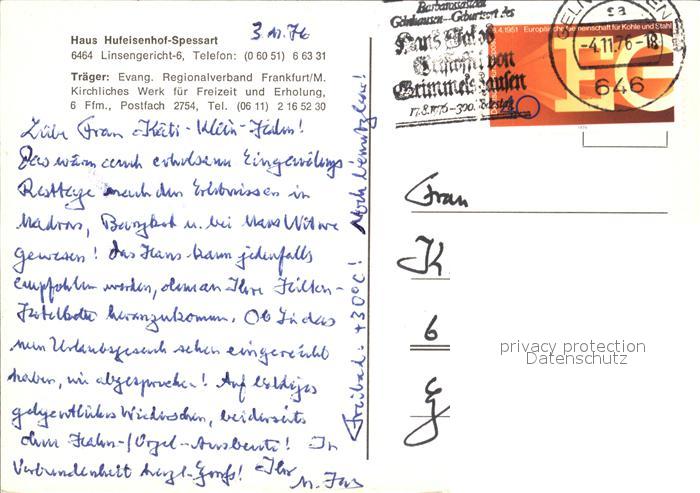 Haus Hufeisenhof-Spessart
6464 Linsengericht-6, Telefon: (0 60 51) 6 63 31
Träger: Evang. Regionalverband Frankfurt/M.
Kirchliches Werk für Freizeit und Erholung,
6 Ffm., Postfach 2754, Tel. (06 11) 2 16 52 30
3.11.76
Liebe Frau Käti-Klein-Jahn!
Das wären auch erholsame
Resttage nach den Erlebnissen in
Madras, Bangkok u. bei Hans Witwe
gewesen! Das Haus kann jedenfalls
empfohlen werden, ohne an Ihre
heranzukommen. Ob Sie das
neue Urlaubsgesuch schon eingereicht
haben, wie abgesprochen! Auf baldiges
gelegentliches Wiedersehen, beiderseits
In
Verbundenheit herzl. Gruß! Ihr
Freibad + 30°C! Noch benutzbar!
Barbarossastadt
Gelnhausen - Geburtsort des
Hans Jakob
Christoffel von
Grimmelshausen
17.8.1976 - 300. Todestag
-4.11.76-18
646
4.1951 Europäische Gemeinschaft für Kohle und Stahl
Frau
K
6
G
privacy protection
Datenschutz